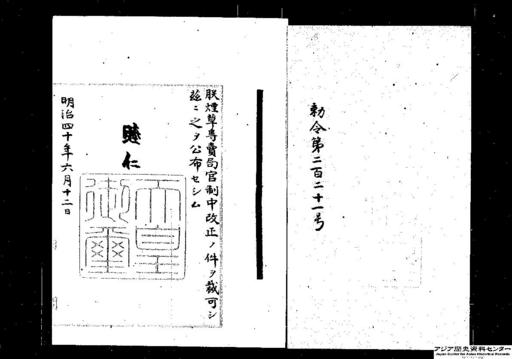 勅令第二百二十一号
朕煙草專賣局官制中改正ノ件ヲ裁可シ
茲ニ之ヲ公布セシム
睦仁
天皇御璽
明治四十年六月十二日
アジア歴史資料センター
Japan Center for Asian Historical Records